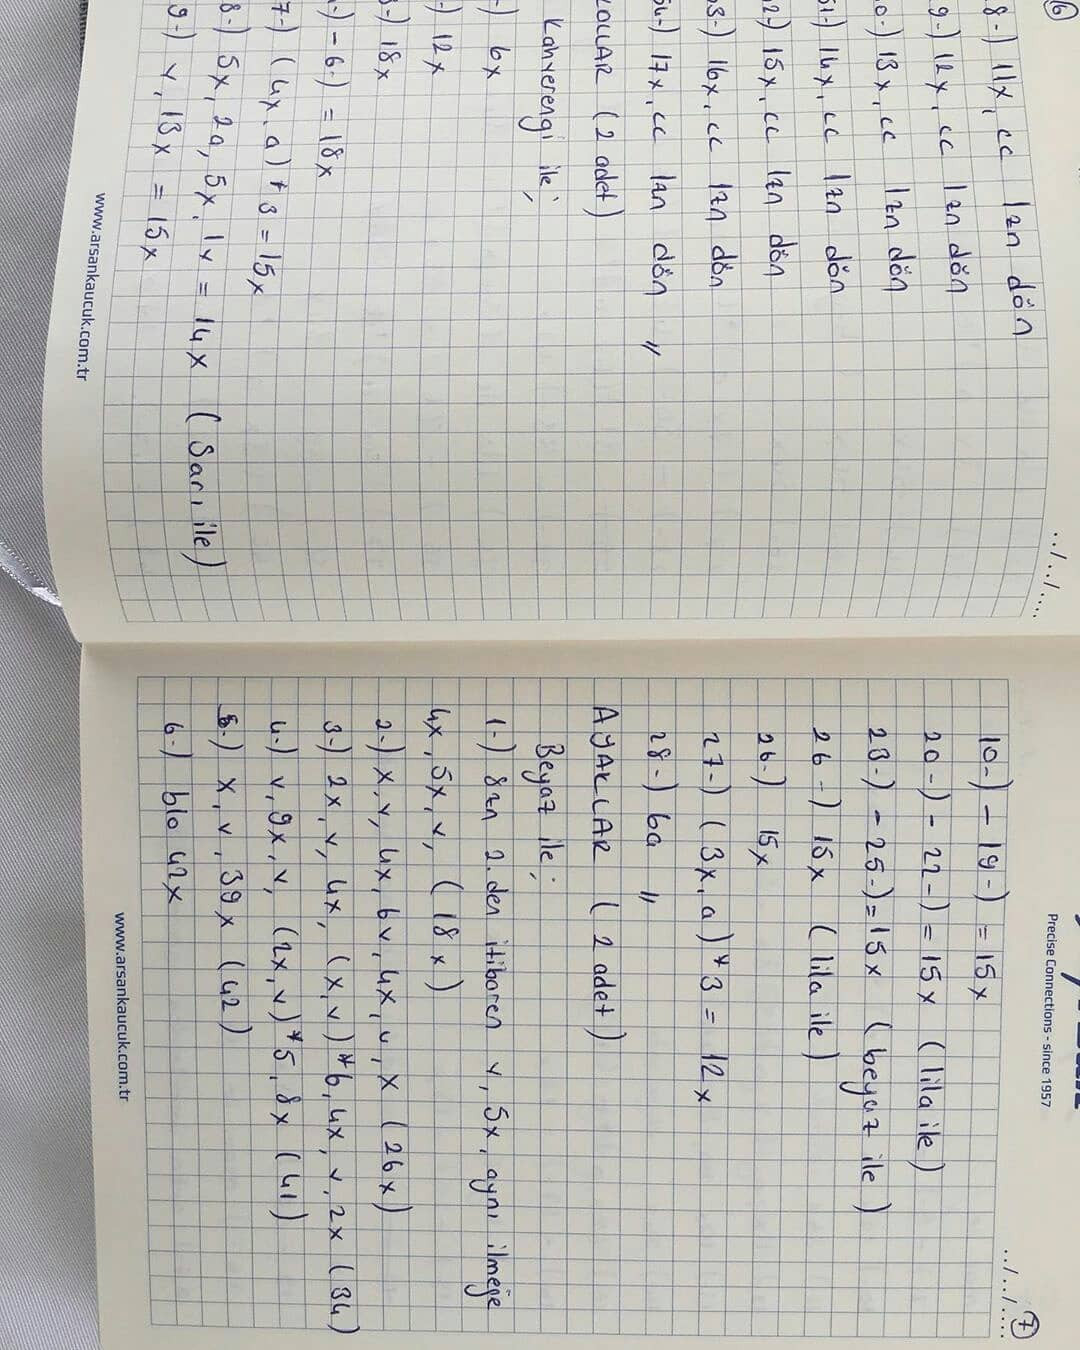 6
../../....
8-) 11x, cc 1zn dön
9-) 12x, cc 1zn dön
0-) 13x, cc 1zn dön
51-) 14x, cc 1zn dön
2-) 15x, cc 1zn dön
3-) 16x, cc 1zn dön
54-) 17x, cc 1zn dön "
KOLLAR (2 adet)
Kahverengi ile;
-) 6x
-) 12x
3-) 18x
-) - 6-) = 18x
7-) (4x, a)*3 = 15x
8-) 5x, 2a, 5x, 1x = 14x (Sarı ile)
9-) v, 13x = 15x
www.arsankaucuk.com.tr
Precise Connections - since 1957
../../....
7
10-) - 19-) = 15x
20-) - 22-) = 15x (lila ile)
23-) - 25-) = 15x (beyaz ile)
26-) 15x (lila ile)
26-) 15x
27-) (3x, a)*3 = 12x
28-) ba "
AYAKLAR (2 adet)
Beyaz ile;
1-) 8zn 2.den itibaren v, 5x, aynı ilmeğe
4x, 5x, v, (18x)
2-) x, v, 4x, 6v, 4x, v, x (26x)
3-) 2x, v, 4x, (x, v)*6, 4x, v, 2x (34)
4-) v, 9x, v, (2x, v)*5, 8x (41)
5-) x, v, 39x (42)
6-) blo 42x
www.arsankaucuk.com.tr